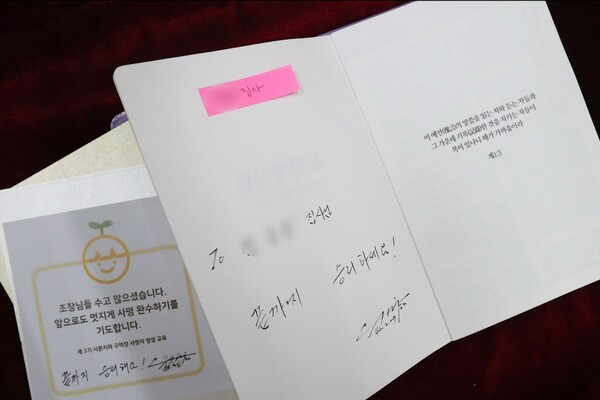 집사
To 집사님
끝까지 승리하세요!
이 예언의 말씀을 읽는 자와 듣는 자들과
그 가운데 기록한 것을 지키는 자들이
복이 있나니 때가 가까움이라
계1:3
조장님들 수고 많으셨습니다.
앞으로도 멋지게 사명 완수하기를
기도합니다.
제 3기 시몬지파 구역장 사명자 양성 교육
끝까지 승리해요!